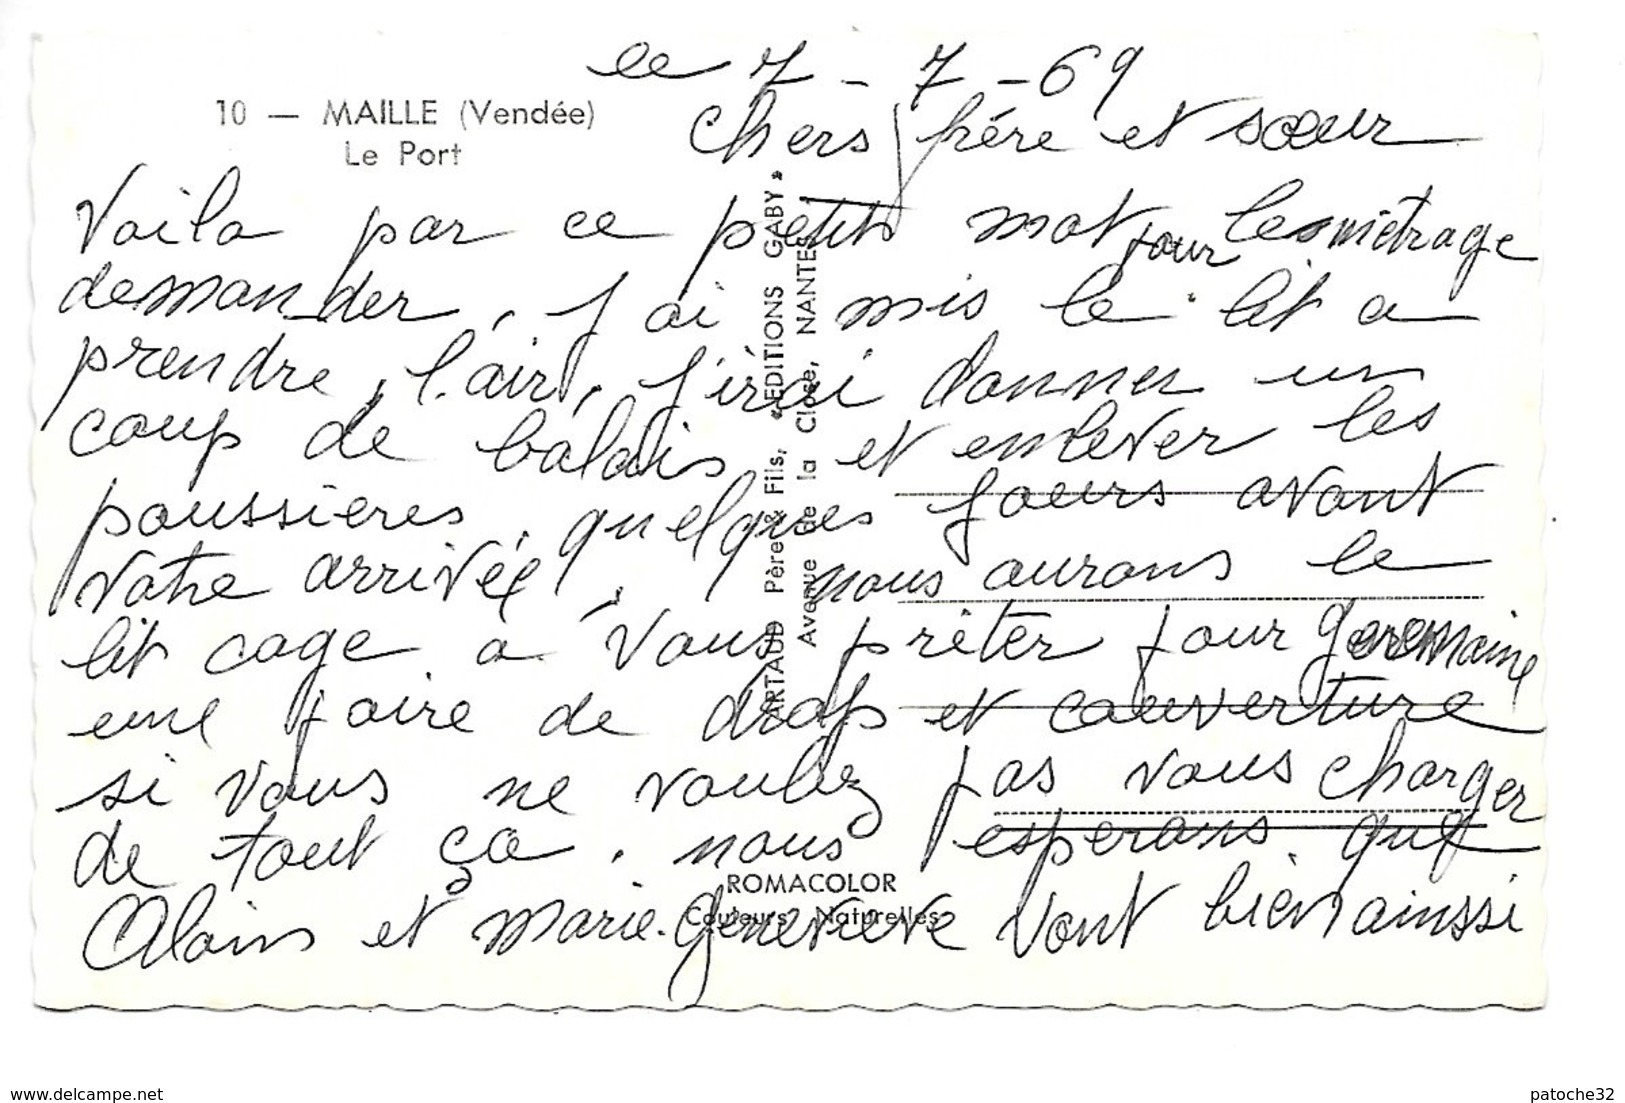 le 7-7-69
10 — MAILLE (Vendée)
Le Port
Chers frére et sœur
Voila par ce petit mot pour le métrage
demander, J ai mis le lit a
prendre l'air, J'irai donner un
coup de balais et enlever les
poussieres quelques jours avant
votre arrivée, nous aurons le
lit cage a vous prêter pour Germaine
une paire de draps et couverture
si vous ne voulez pas vous charger
de tout ça. nous esperons que
Alain et Marie-Genevieve vont bien ainssi
ARTAUD Père & Fils, «EDITIONS GABY»
Avenue de la Close, NANTES
ROMACOLOR
Couleurs Naturelles
www.delcampe.net
patoche32